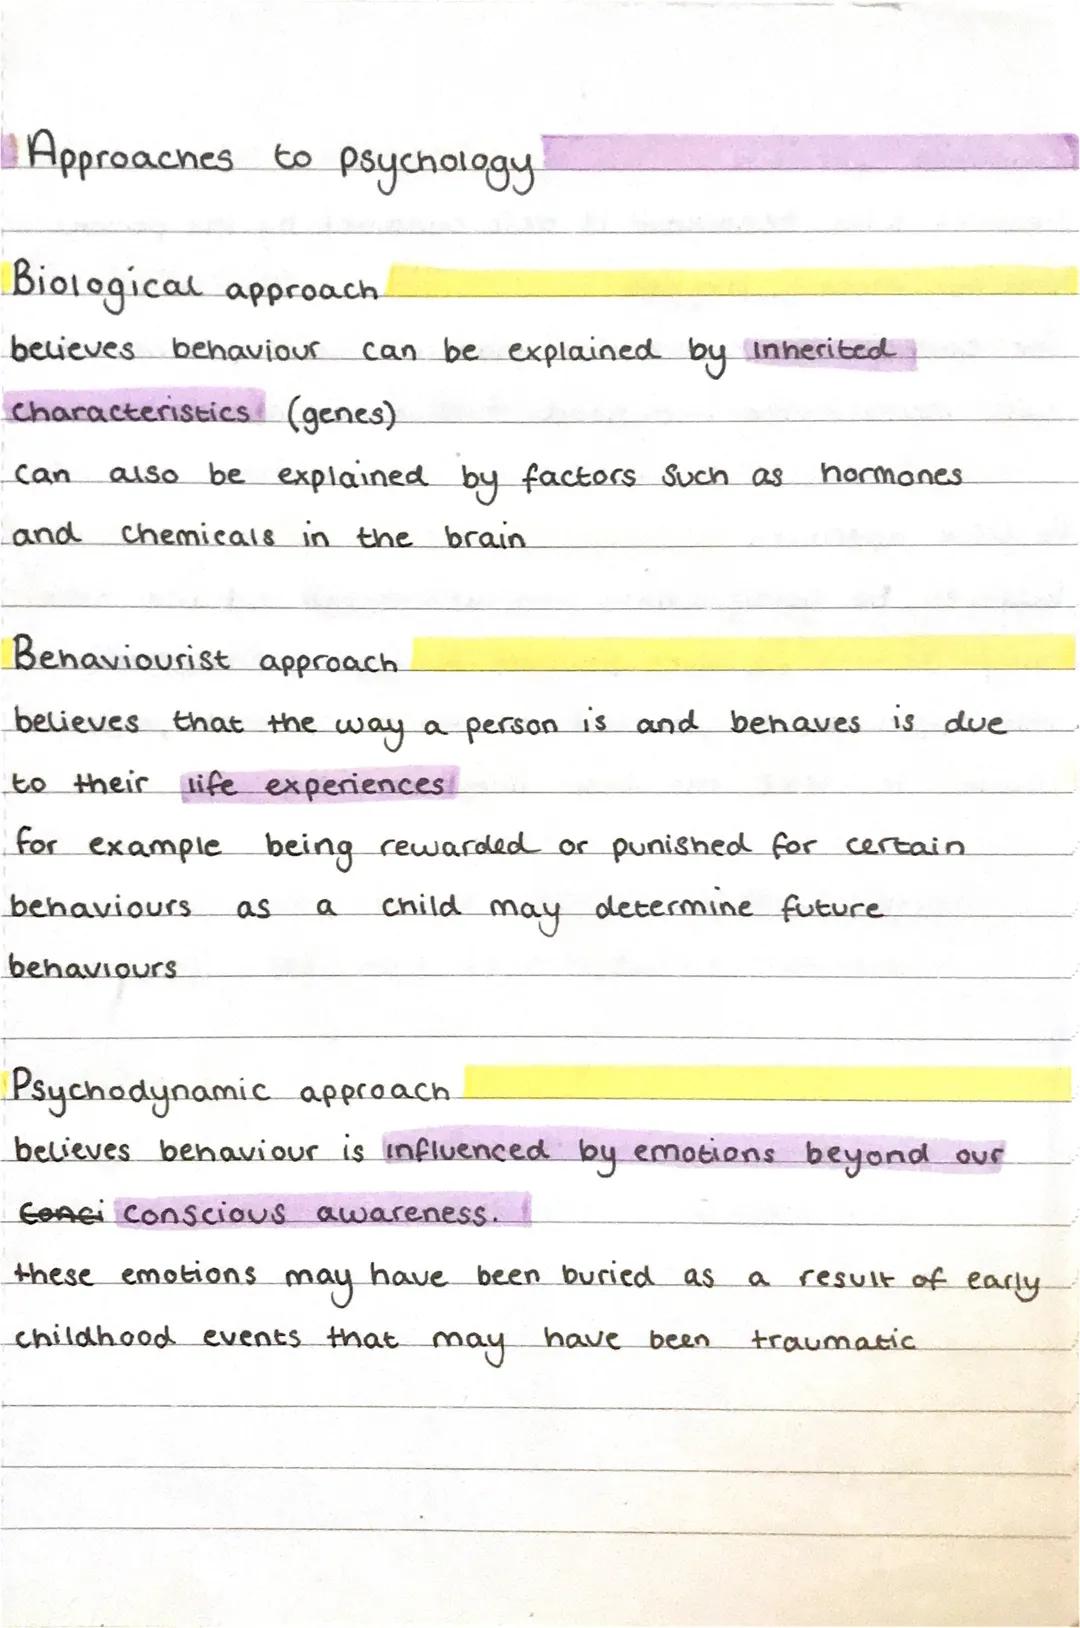 Approaches to psychology
Biological approach
believes behaviour can be explained by inherited
characteristics (genes)
can also be explained by factors such as hormones
and chemicals in the brain
Behaviourist approach
believes that the way a person is and behaves is due
to their life experiences
for example being rewarded or punished for certain
behaviours as a child may determine future
behaviours
Psychodynamic approach
believes behaviour is influenced by emotions beyond our
conci conscious awareness.
these emotions may have been buried as a result of early
childhood events that may have been traumatic